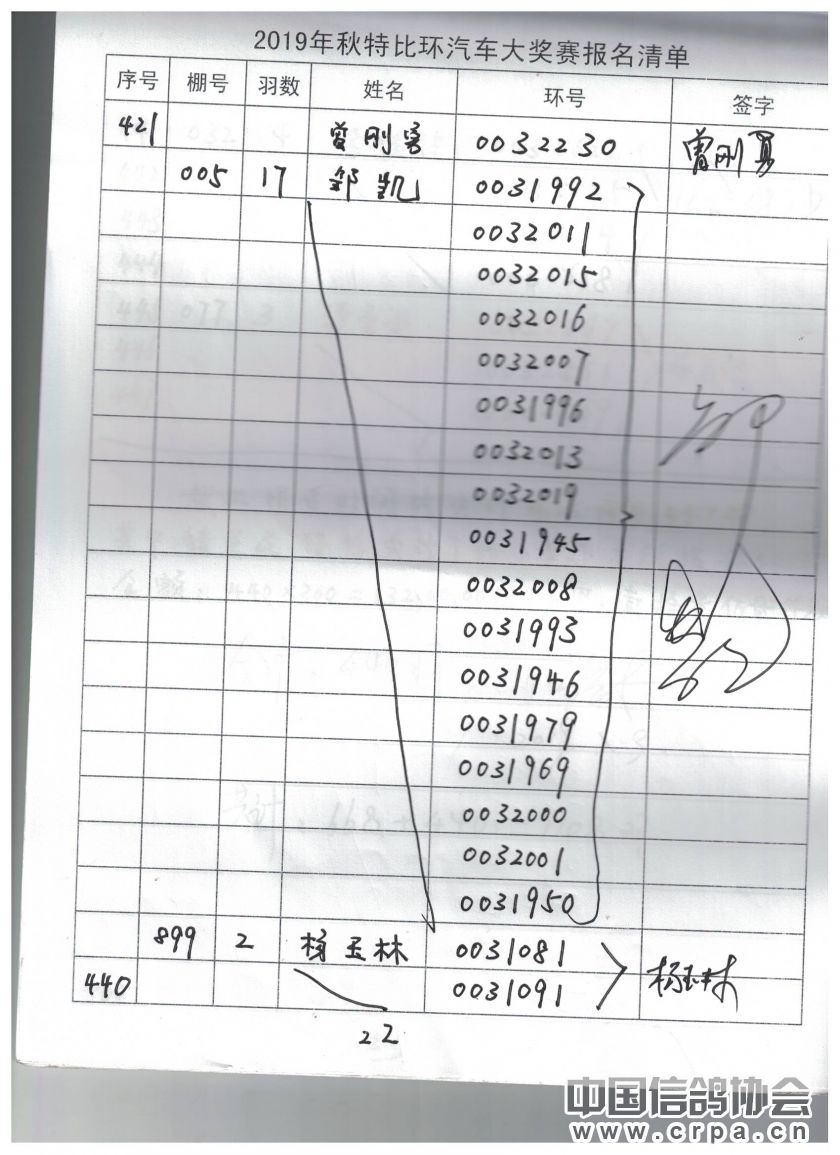 2019年秋特比环汽车大奖赛报名清单
序号 棚号 羽数 姓名 环号 签字
421 曾刚勇 0032230 曾刚勇
005 17 邹凯 0031992
0032011
0032015
0032016
0032007
0031996
0032013
0032019
0031945
0032008
0031993
0031946
0031979
0031969
0032000
0032001
0031950
899 2 杨玉林 0031081 杨玉林
440 0031091
22
中国信鸽协会
www.crpa.cn